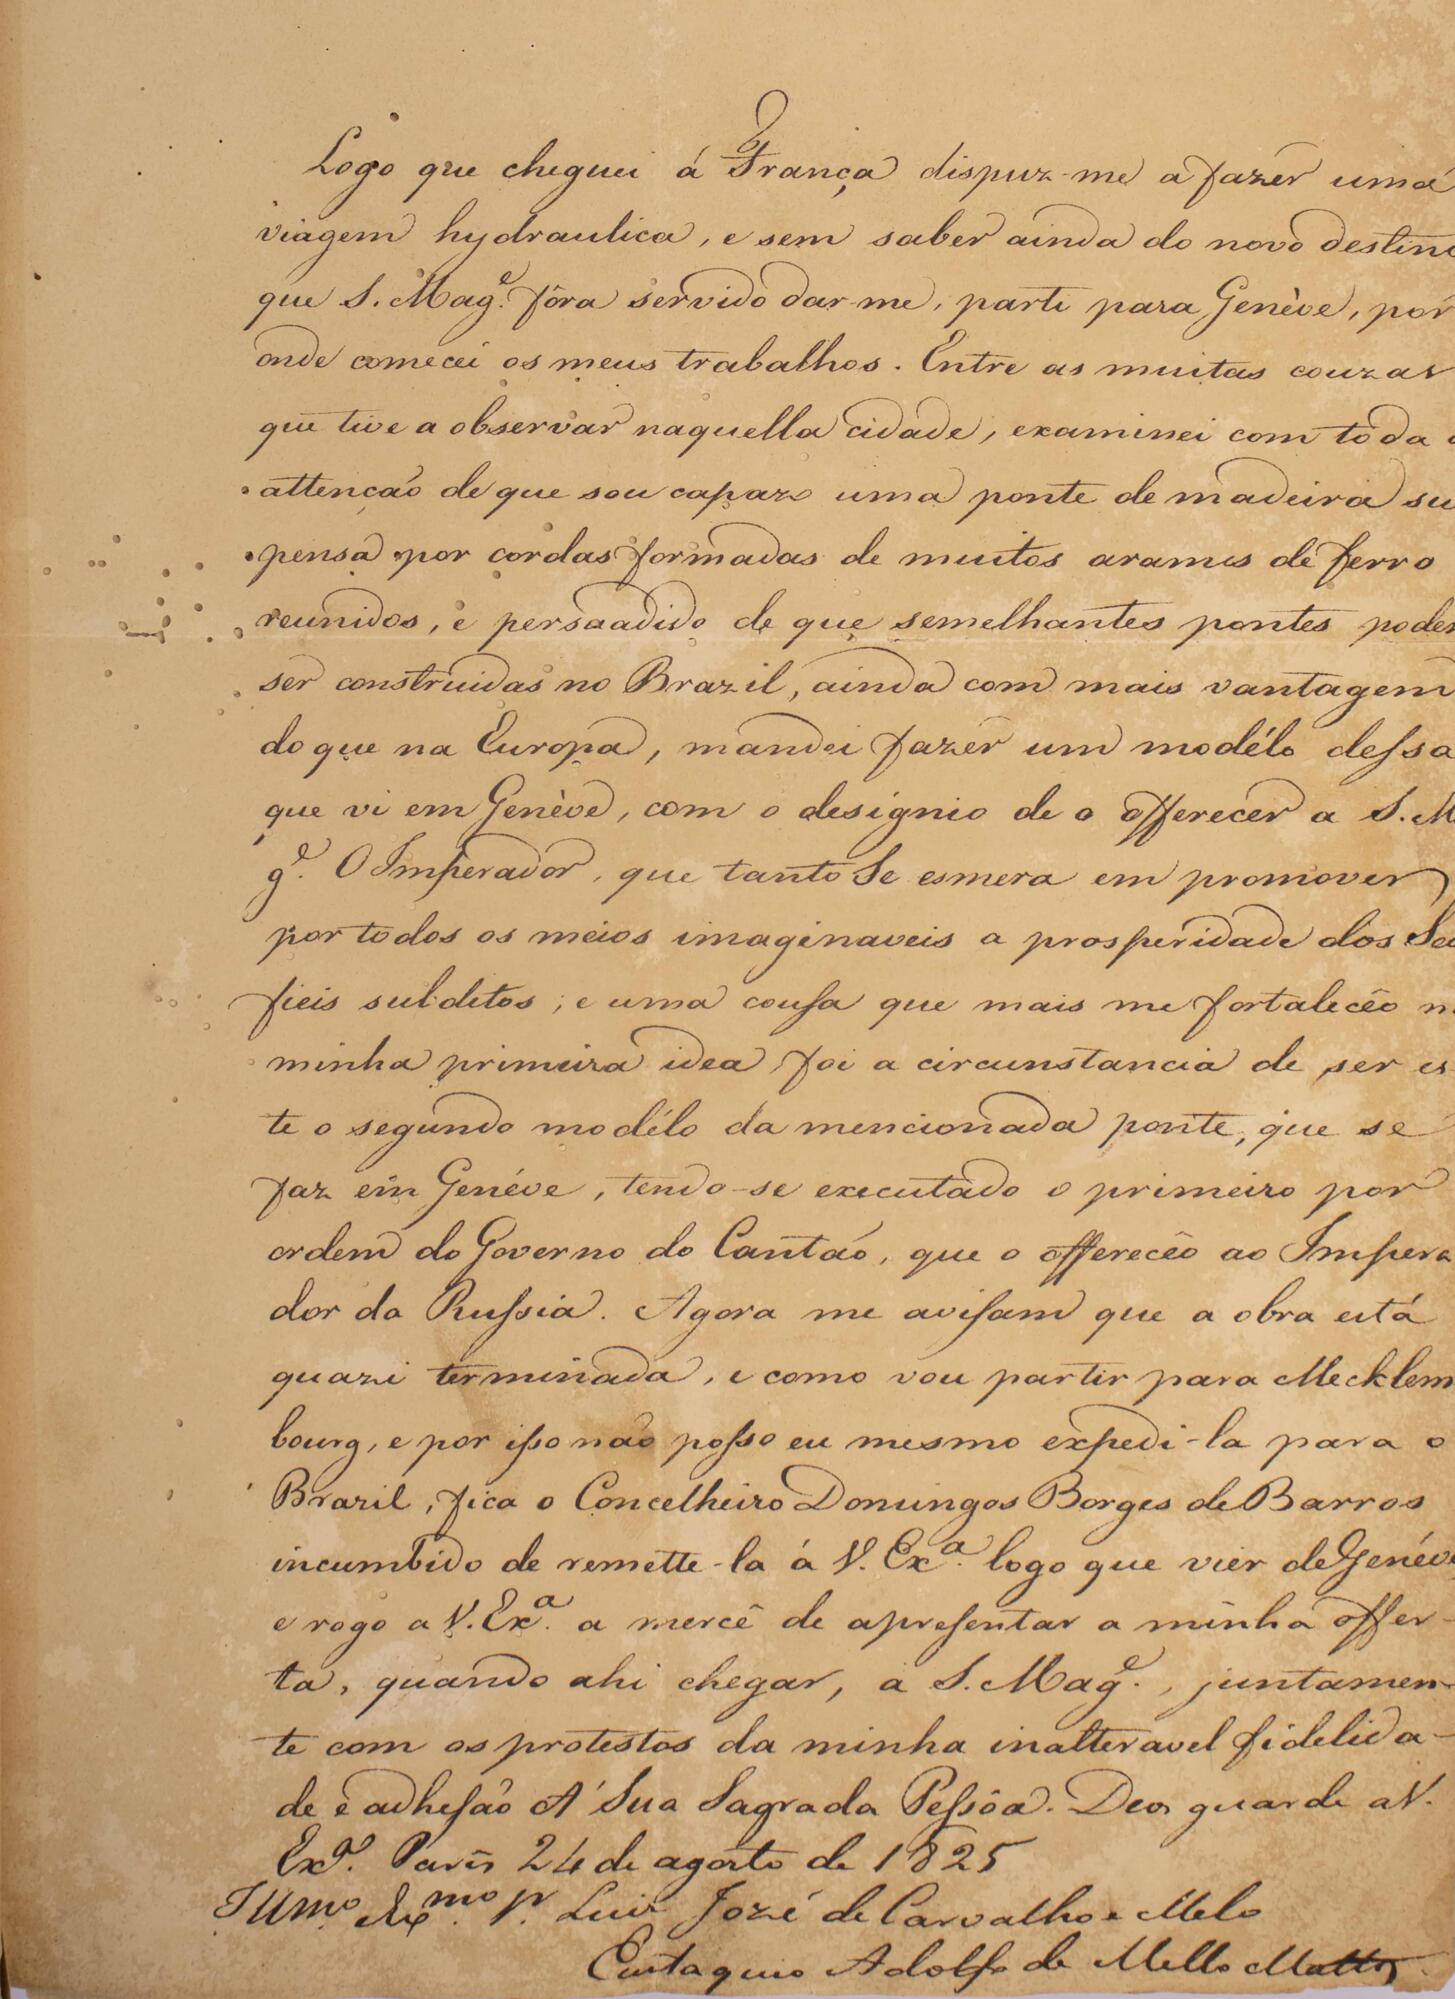 Logo que cheguei á França dispuz-me a fazer uma
viagem hydraulica, e sem saber ainda do novo destino
que S. Mag.e fôra servido dar-me, parti para Genève, por
onde comecei os meus trabalhos. Entre as muitas couzas
que tive a observar naquella cidade, examinei com toda a
attenção de que sou capaz uma ponte de madeira su
pensa por cordas formadas de muitos arames de ferro
reunidos, e persaadido de que semelhantes pontes podem
ser construidas no Brazil, ainda com mais vantagem
do que na Europa, mandei fazer um modélo dessa
que vi em Genève, com o designio de o offerecer a S. M
g.e O Imperador, que tanto Se esmera em promover
por todos os meios imaginaveis a prosperidade dos Seu
fieis subditos; e uma cousa que mais me fortalecêo n
minha primeira idea, foi a circunstancia de ser es-
te o segundo modélo da mencionada ponte, que se
faz em Genéve, tendo-se executado o primeiro por
ordem do Governo do Cantão, que o offerecêo ao Impera
dor da Russia. Agora me avisam que a obra está
quazi terminada, e como vou partir para Mecklem
bourg, e por isso não posso eu mesmo expedi-la para o
Brazil, fica o Concelheiro Domingos Borges de Barros
incumbido de remette-la á V. Ex.a logo que vier de Genéve
e rogo a V. Ex.a a mercê de apresentar a minha offer-
ta, quando ahi chegar, a S. Mag.e, juntamen-
te com os protestos da minha inalteravel fidelida-
de e adhesão Á Sua Sagrada Pessôa. Deos guarde a V.
Ex.a Paris 24 de agosto de 1825
Illmo. Exmo. Sr. Luiz Jozé de Carvalho e Melo
Eustaquio Adolfo de Mello Mattos